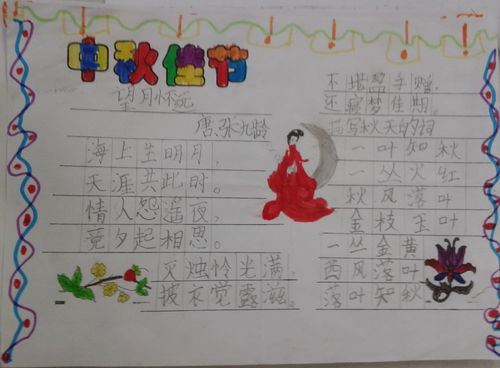 中秋佳节
望月怀远
唐,张九龄
海上生明月,
天涯共此时。
情人怨遥夜,
竟夕起相思。
灭烛怜光满,
披衣觉露滋。
不堪盈手赠,
还寝梦佳期。
描写秋天的词
一叶知秋
一丛火红
秋风落叶
金枝玉叶
一丛金黄
西风落叶
落叶知秋